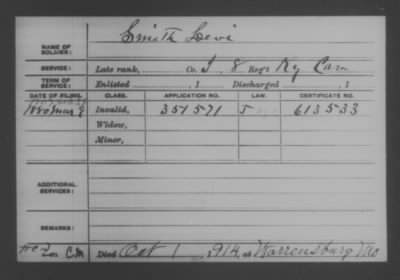 NAME OF SOLDIER: Smith Levi
SERVICE: Late rank, Co. I, 8 Reg't Ky Cav
TERM OF SERVICE: Enlisted , 1 Discharged , 1
DATE OF FILING. CLASS. APPLICATION NO. LAW. CERTIFICATE NO.
1880 Invalid, 351571 613533
Widow,
Minor,
ADDITIONAL SERVICES:
REMARKS:
Died Oct 1, 1914, at Warrensburg Mo